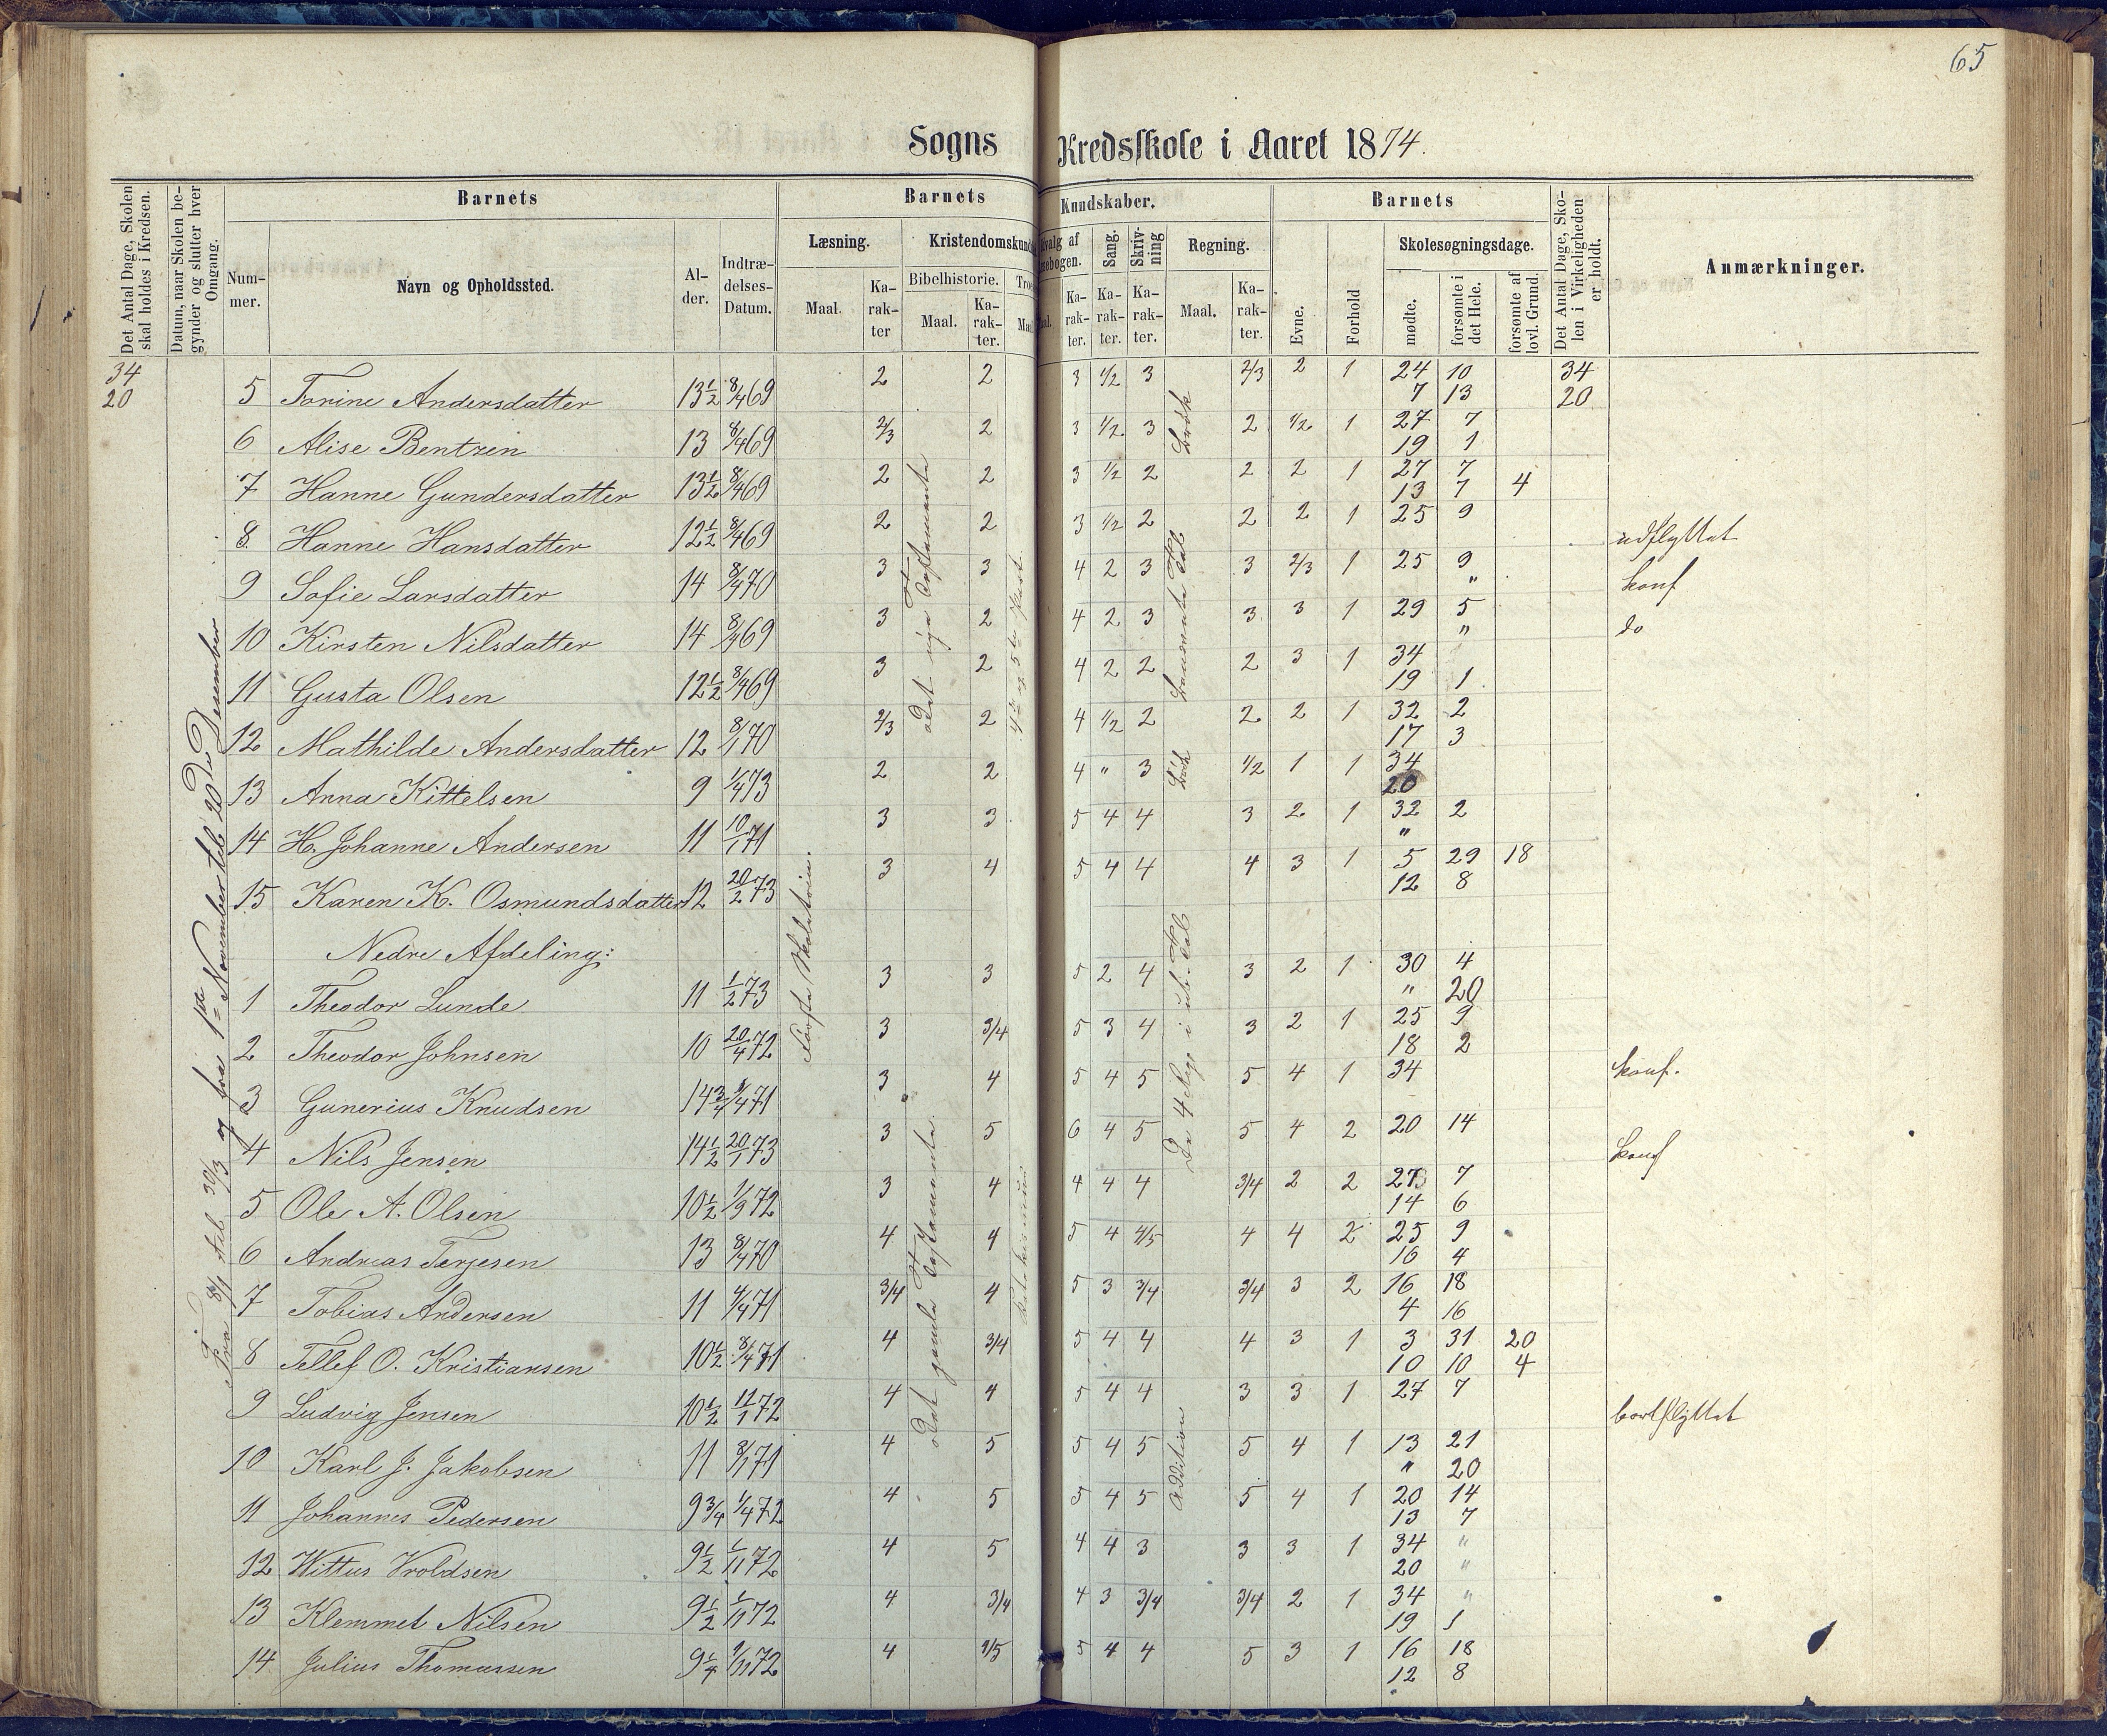 65
Sogns Kredsskole i Aaret 1874.
Det Antal Dage, Skolen skal holdes i Kredsen.
Datum, naar Skolen begynder og slutter hver Omgang.
Barnets
Nummer.
Navn og Opholdssted.
Alder.
Indtrædelses-Datum.
Barnets Kundskaber.
Læsning.
Maal.
Karakter
Bibelhistorie.
Maal.
Karakter.
Sang.
Karakter.
Skrivning
Karakter.
Regning.
Maal.
Karakter.
Barnets
Evne.
Forhold
Skolesøgningsdage.
mødte.
forsømte i det Hele.
forsømte af lovl. Grund.
Det Antal Dage, Skolen i Virkeligheden er holdt.
Anmærkninger.
34 2 2 3 1/2 3 2/3 2 1 24 10 34
20 5 Torine Andersdatter 13 1/2 8/4 69 7 13 20
2/3 2 3 1/2 3 2 1/2 1 27 7
6 Alise Bentzen 13 8/4 69 19 1
2 2 3 1/2 2 2 2 1 27 7
7 Hanne Gundersdatter 13 1/2 8/4 69 13 7 4
2 2 3 1/2 2 2 2 1 25 9
8 Hanne Hansdatter 12 1/2 8/4 69 udflyttet
3 3 4 2 3 3 2/3 1 25 9
9 Sofie Larsdatter 14 8/4 70 " konf
3 2 4 2 3 3 3 1 29 5
10 Kirsten Nilsdatter 14 8/4 69 " do
3 2 4 2 2 2 3 1 34
11 Gusta Olsen 12 1/2 8/4 69 19 1
2/3 2 4 1/2 2 2 2 1 32 2
12 Mathilde Andersdatter 12 8/1 70 17 3
2 2 4 " 3 1/2 1 1 34
13 Anna Kittelsen 9 1/4 73 20
3 3 5 4 4 3 2 1 32 2
14 H. Johanne Andersen 11 10/1 71 "
3 4 5 4 4 4 3 1 5 29 18
15 Karen K. Osmundsdatter 12 20/2 73 12 8
Nedre Afdeling:
3 3 5 2 4 3 2 1 30 4
1 Theodor Lunde 11 1/2 73 " 20
3 3/4 5 3 4 3 2 1 25 9
2 Theodor Johnsen 10 20/4 72 18 2
3 4 5 4 5 5 4 1 34 konf.
3 Gunerius Knudsen 14 3/4 8/4 71
3 5 6 4 5 5 4 2 20 14
4 Nils Jensen 14 1/2 20/1 73 konf
3 4 4 4 4 3/4 2 2 27 7
5 Ole A. Olsen 10 1/2 1/9 72 14 6
4 4 5 4 4/5 4 4 2 25 9
6 Andreas Terjesen 13 8/4 70 16 4
3/4 4 5 3 3/4 3/4 3 2 16 18
7 Tobias Andersen 11 4/4 71 4 16
4 3/4 5 4 4 4 3 1 3 31 20
8 Tellef O. Kristiansen 10 1/2 8/4 71 10 10 4
4 4 5 4 4 3 3 1 27 7
9 Ludvig Jensen 10 1/2 11/1 72 bortflyttet
4 5 5 4 5 5 4 1 13 21
10 Karl J. Jakobsen 11 8/1 71 " 20
4 5 5 4 5 5 4 1 20 14
11 Johannes Pedersen 9 3/4 1/4 72 13 7
4 5 4 4 3 3 3 1 34 "
12 Wittus Vroldsen 9 1/2 1/11 72 20 "
4 3/4 4 3 3/4 3/4 2 1 34 "
13 Klemmet Nilsen 9 1/2 1/11 72 19 1
4 4/5 5 4 4 5 3 1 16 18
14 Julius Thomassen 9 1/4 1/11 72 12 8
Fra 8/1 til 20/3 og fra 1ste November til 20de Desember
det nye Testamente
4de og 5te Part
det gamle Testamente
Katekismus
Brøk
Benævnte Tal
De 4 Reg. i ub. Tal
Addition